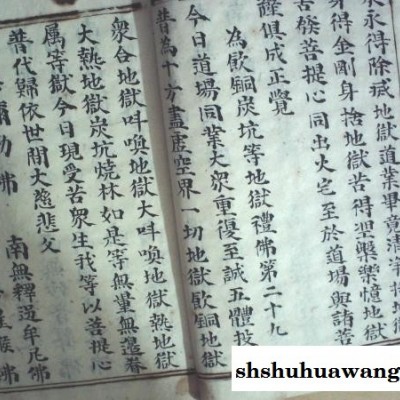 永得除滅地獄道業畢竟清淨捨地獄
身得金剛身捨地獄苦得涅槃樂憶地獄
苦發菩提心同出火宅至於道場與諸菩
薩俱成正覺
為飲銅炭坑等地獄禮佛第二十九
今日道場同業大衆重復至誠五體投
普為十方盡虛空界一切地獄飲銅地獄
衆合地獄叫喚地獄大叫喚地獄熱地獄
大熱地獄炭坑燒林如是等無量無邊眷
屬等獄今日現受苦衆生我等以菩提心
普代歸依世間大慈悲父
彌勒佛 南無釋迦牟尼佛
佛
shshuhuawang